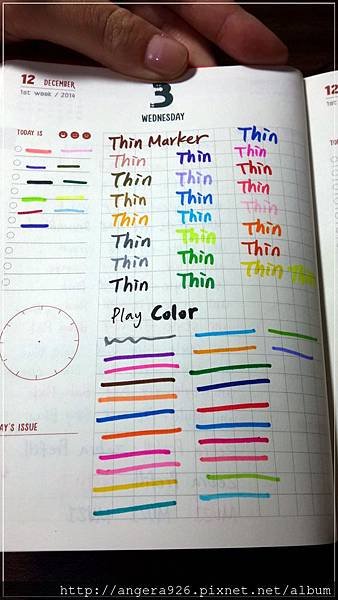 12 DECEMBER
1st week / 2014
3
WEDNESDAY
12
1st
TODAY IS
TO
Thin Marker Thin
Thin Thin Thin
Thin Thin Thin
Thin Thin Thin
Thin Thin Thin
Thin Thin Thin
Thin Thin Thin
Thin Thin Thin Thin
Play Color
AY'S ISSUE
http://angera926.pixnet.net/album